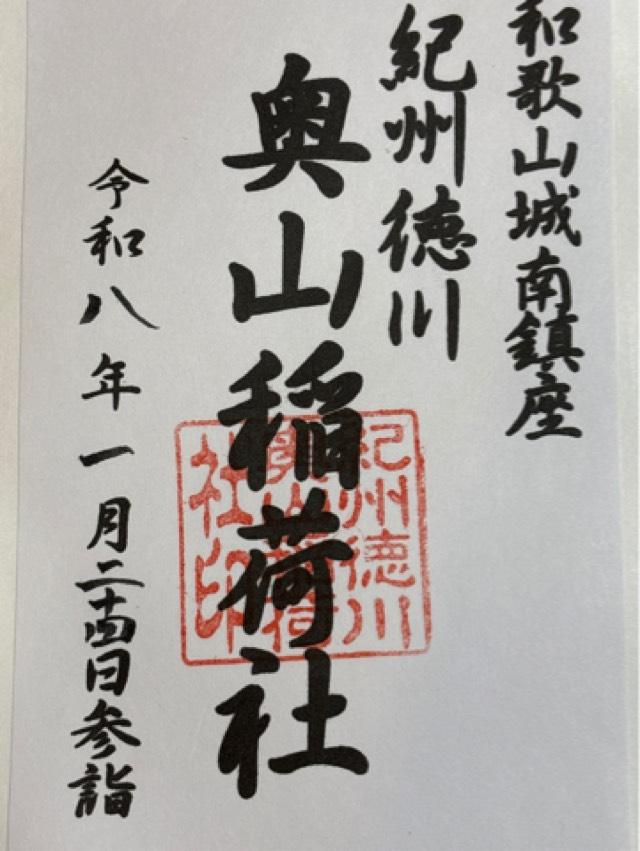 和歌山城南鎮座
紀州徳川
奥山稲荷社
紀州徳川
奥山稲荷
社印
令和八年一月二十四日参詣